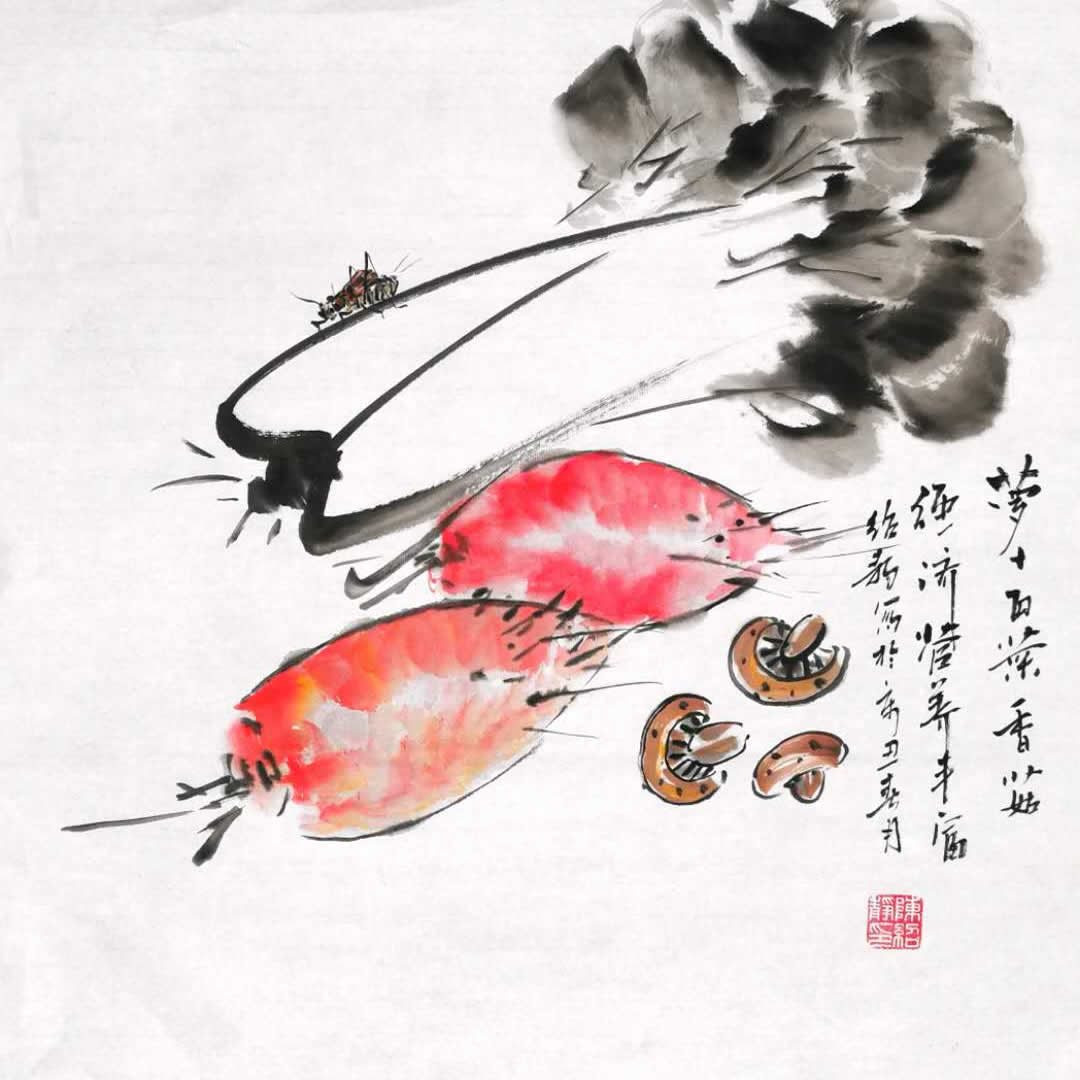 萝卜白菜香菇
经济营养丰富
绍静写於辛丑春月
陳紹靜印